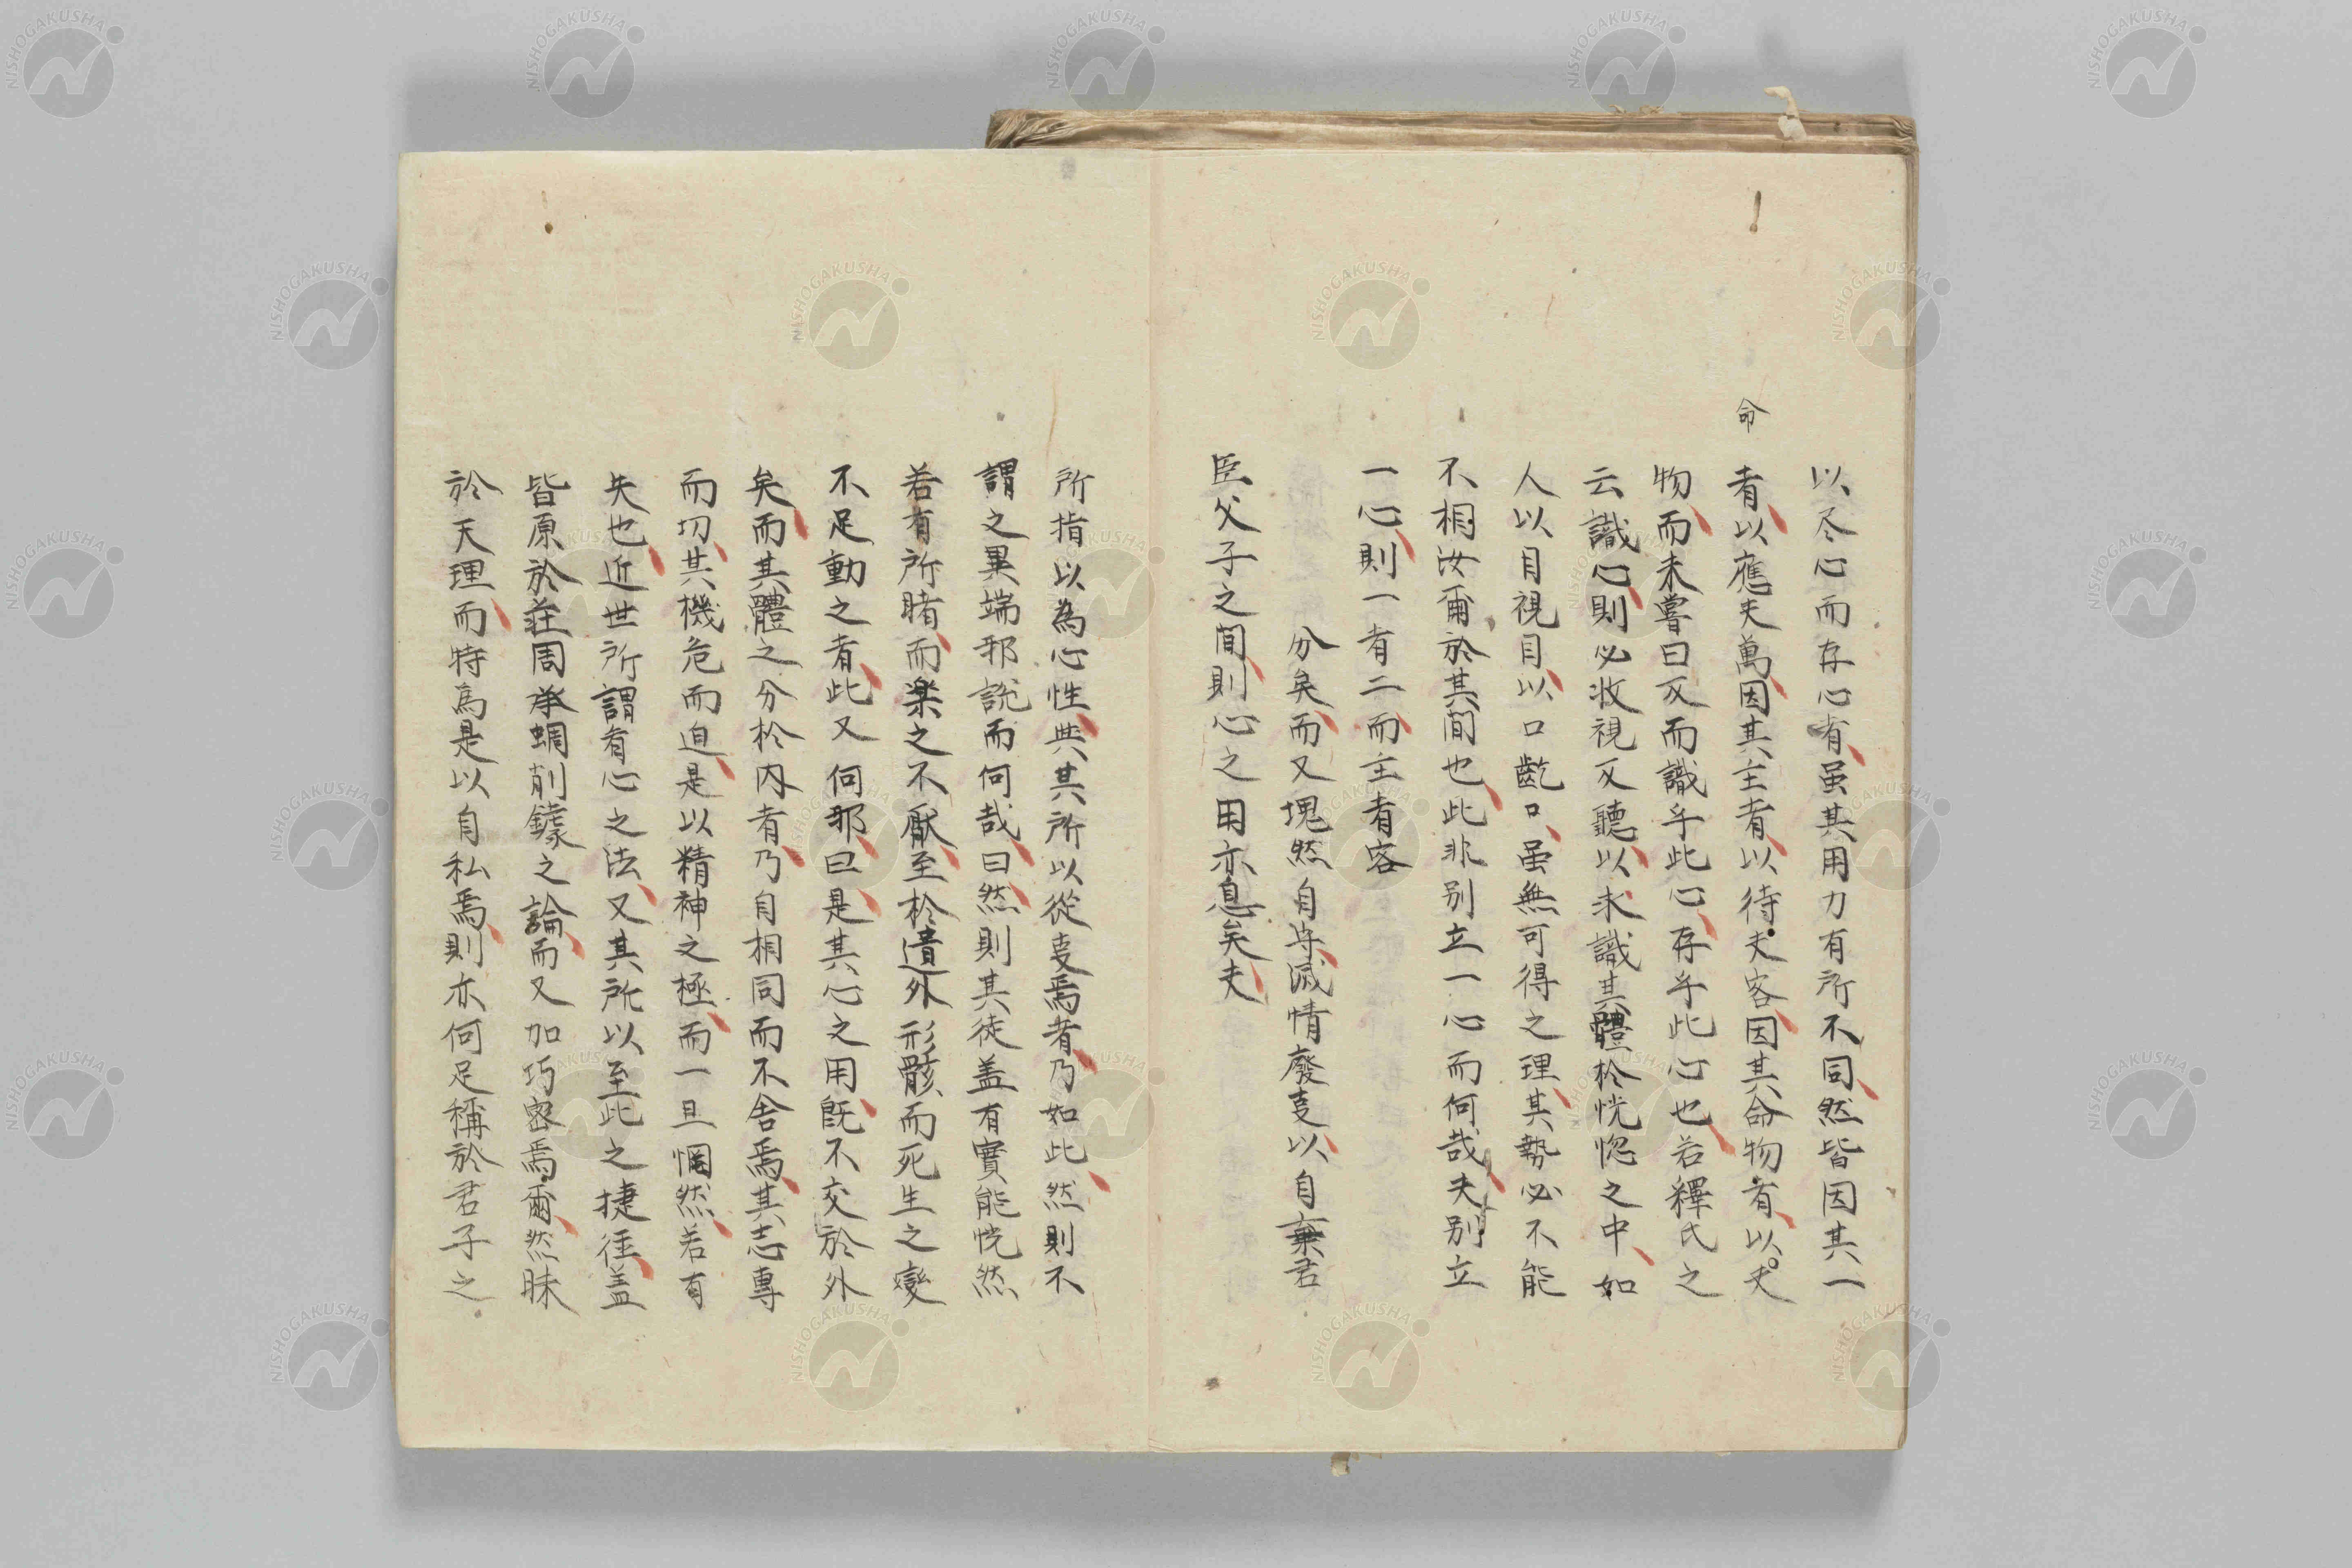 以尽心而存心者虽其用力有所不同然皆因其一
命
者以應夫萬因其主者以待夫客因其命物者以夫
物而未嘗曰反而識乎此心存乎此心也若釋氏之
云識心則必收視反聽以求識其體於恍惚之中如
人以目視目以口齕口虽無可得之理其勢必不能
不相汝爾於其間也此非别立一心而何哉夫别立
一心則一者二而主者客
分矣而又塊然自守滅情廢叓以自棄君
臣父子之間則心之用亦息矣夫
所指以為心性與其所以從叓焉者乃如此然則不
謂之異端邪説而何哉曰然則其徒盖有實能恍然
若有所睹而楽之不厭至於遺外形骸而死生之變
不足動之者此又何邪曰是其心之用既不交於外
矣而其體之分於内者乃自相同而不舍焉其志專
而切其機危而迫是以精神之極而一旦惘然若有
失也近世所謂看心之法又其所以至此之捷徑盖
皆原於莊周承蜩削鐻之論而又加巧密焉爾然昧
於天理而特為是以自私焉則亦何足稱於君子之
NISHOGAKUSHA